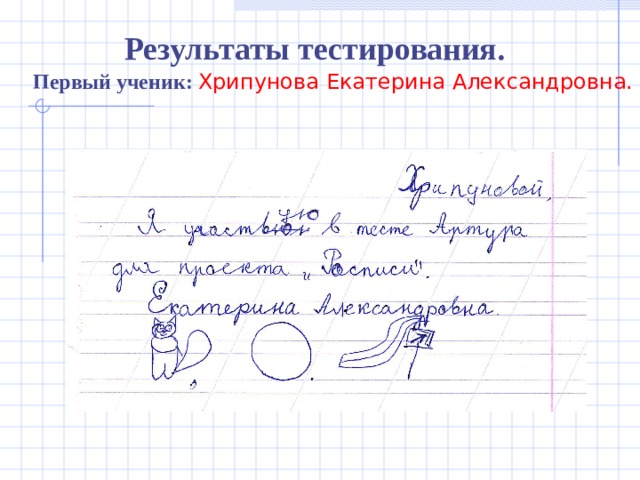 Результаты тестирования.
Первый ученик: Хрипунова Екатерина Александровна.
Хрипуновой,
ую
Я участвою в тесте Артура
для проекта „Росписи".
Екатерина Александровна.